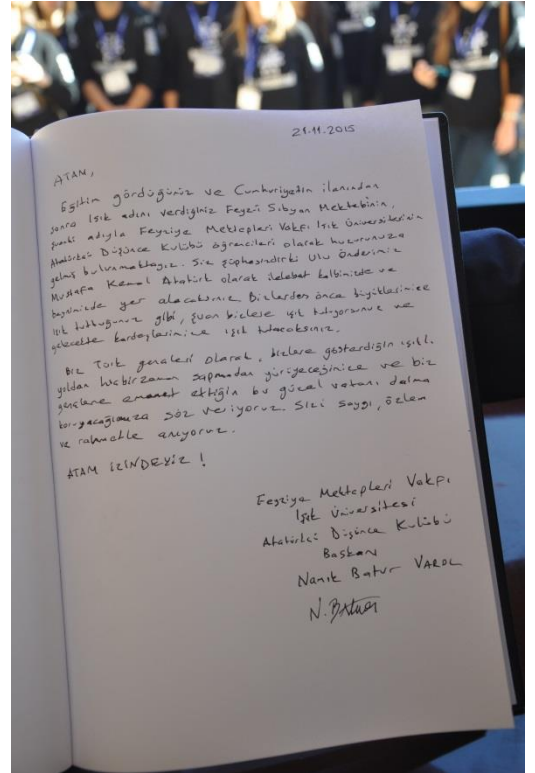 21.11.2015
ATAM,
Eğitim gördüğünüz ve Cumhuriyetin ilanından
sonra Işık adını verdiğiniz Feyzi Sıbyan Mektebinin,
şuanki adıyla Feyziye Mektepleri Vakfı Işık Üniversitesinin
Atatürkçü Düşünce Kulübü öğrencileri olarak huzurunuza
gelmiş bulunmaktayız. Siz şüphesizdirki Ulu Önderimiz
Mustafa Kemal Atatürk olarak ilelebat kalbimizde ve
beynimizde yer alacaksınız. Bizlerden önce büyüklerimize
ışık tuttuğunuz gibi, şuan bizlere ışık tutuyorsunuz ve
gelecekte kardeşlerimize ışık tutacaksınız.
Biz Türk gençleri olarak, bizlere gösterdiğin ışıklı
yoldan hiçbirzaman sapmadan yürüyeceğimize ve biz
gençlere emanet ettiğin bu güzel vatanı daima
koruyacağımıza söz veriyoruz. Sizi saygı, özlem
ve rahmetle anıyoruz.
ATAM İZİNDEYİZ !
Feyziye Mektepleri Vakfı
Işık Üniversitesi
Atatürkçü Düşünce Kulübü
Başkanı
Namık Batur VAROL
N. Batur